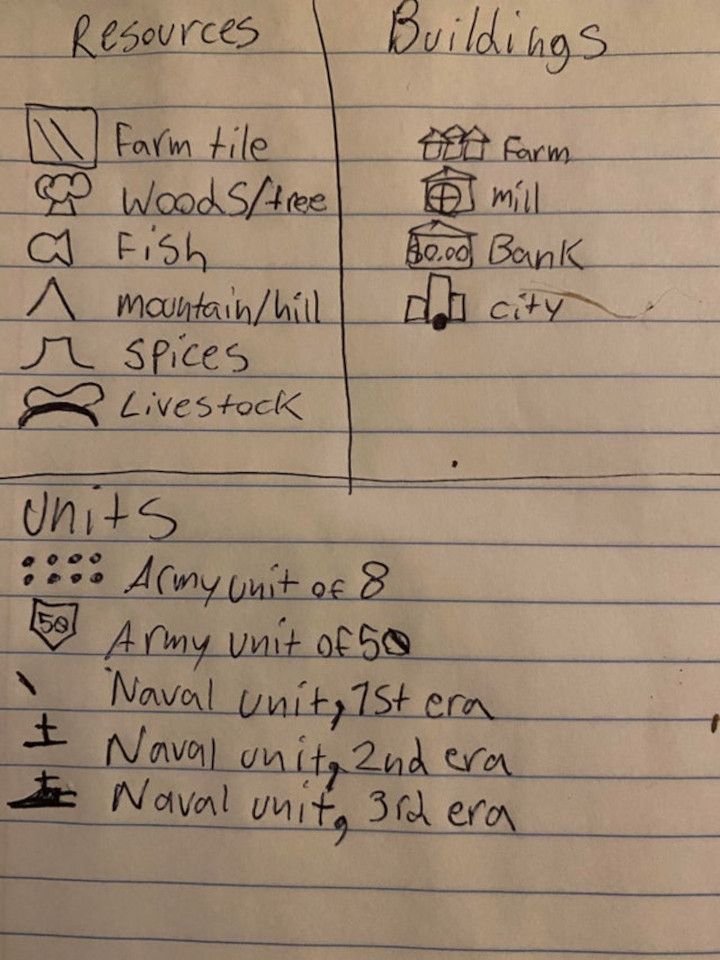 Resources
Farm tile
Woods/tree
Fish
mountain/hill
Spices
Livestock
Buildings
Farm
mill
$0.00 Bank
city
Units
Army unit of 8
50 Army unit of 50
Naval unit, 1st era
Naval unit, 2nd era
Naval unit, 3rd era